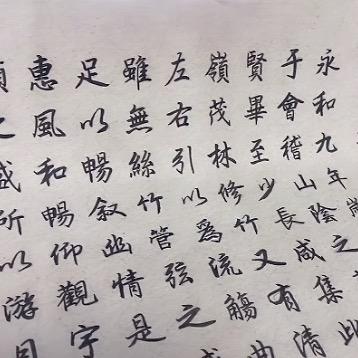 永和九年
于會稽山陰之
賢畢至少長咸集此
嶺茂林修竹又有清
左右引以為流觴曲
雖無絲竹管弦之
足以暢敘幽情是
惠風和暢仰觀宇
類之盛所以游